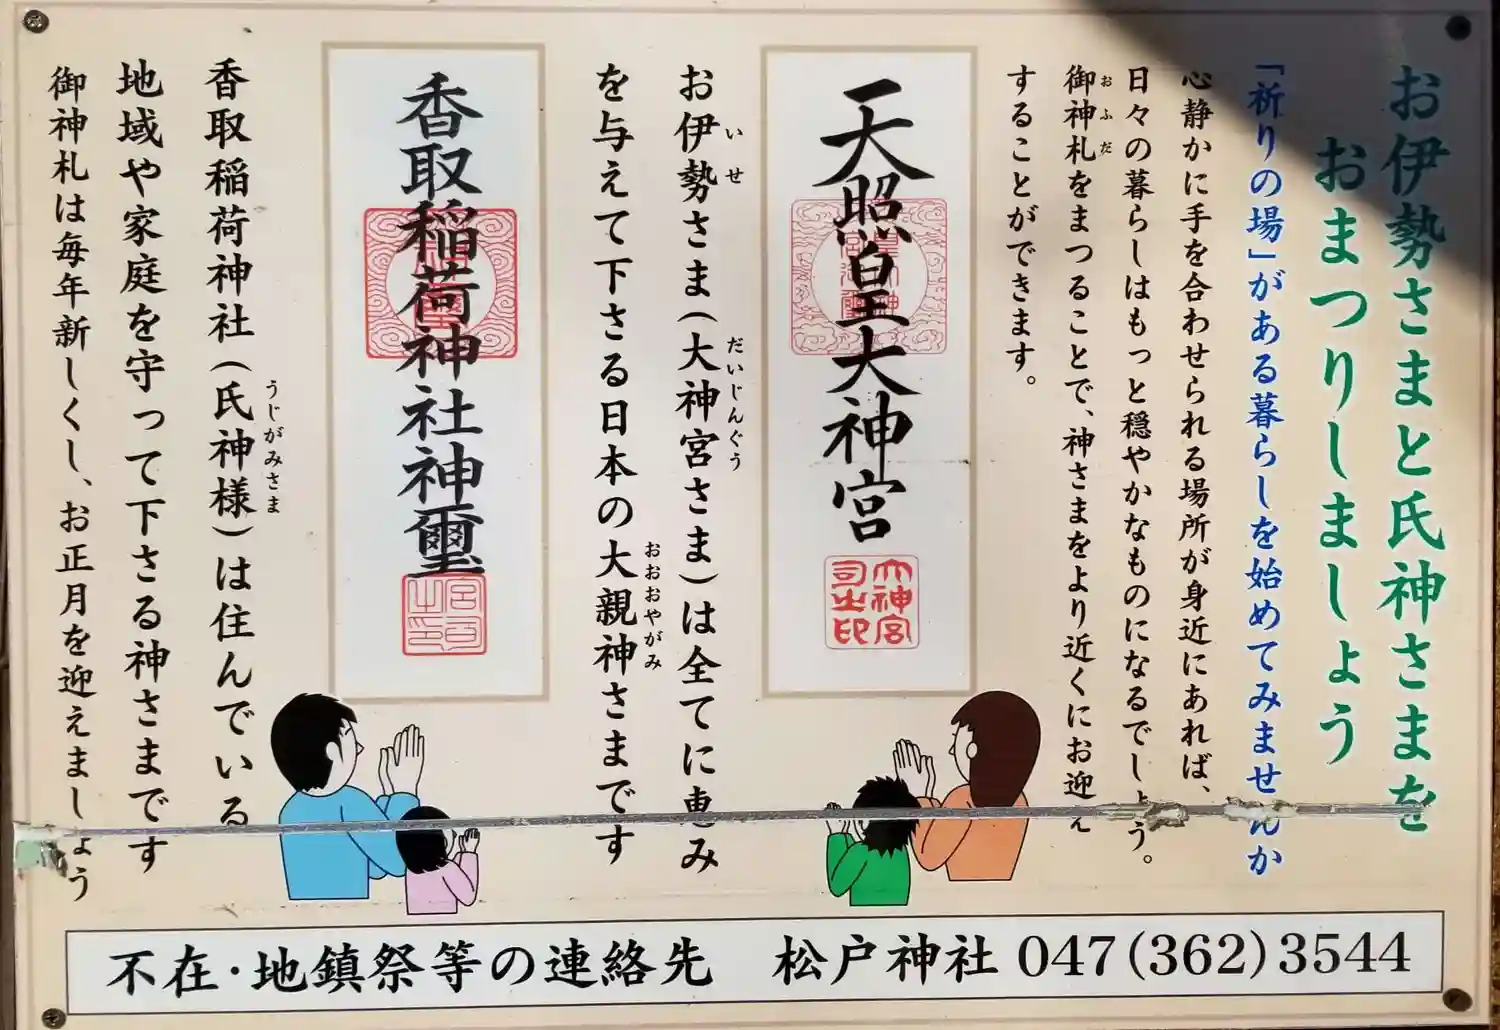 お伊勢さまと氏神さまを
おまつりしましょう
「祈りの場」がある暮らしを始めてみませんか
心静かに手を合わせられる場所が身近にあれば、
日々の暮らしはもっと穏やかなものになるでしょう。
御神札をまつることで、神さまをより近くにお迎え
おふだ
することができます。
天照皇大神宮
大神宮司之印
お伊勢さま(大神宮さま)は全てに恵み
いせ
だいじんぐう
を与えて下さる日本の大親神さまです
おおおやがみ
香取稲荷神社神璽
香取稲荷神社(氏神様)は住んでいる
うじがみさま
地域や家庭を守って下さる神さまです
御神札は毎年新しくし、お正月を迎えましょう
不在・地鎮祭等の連絡先 松戸神社 047(362)3544